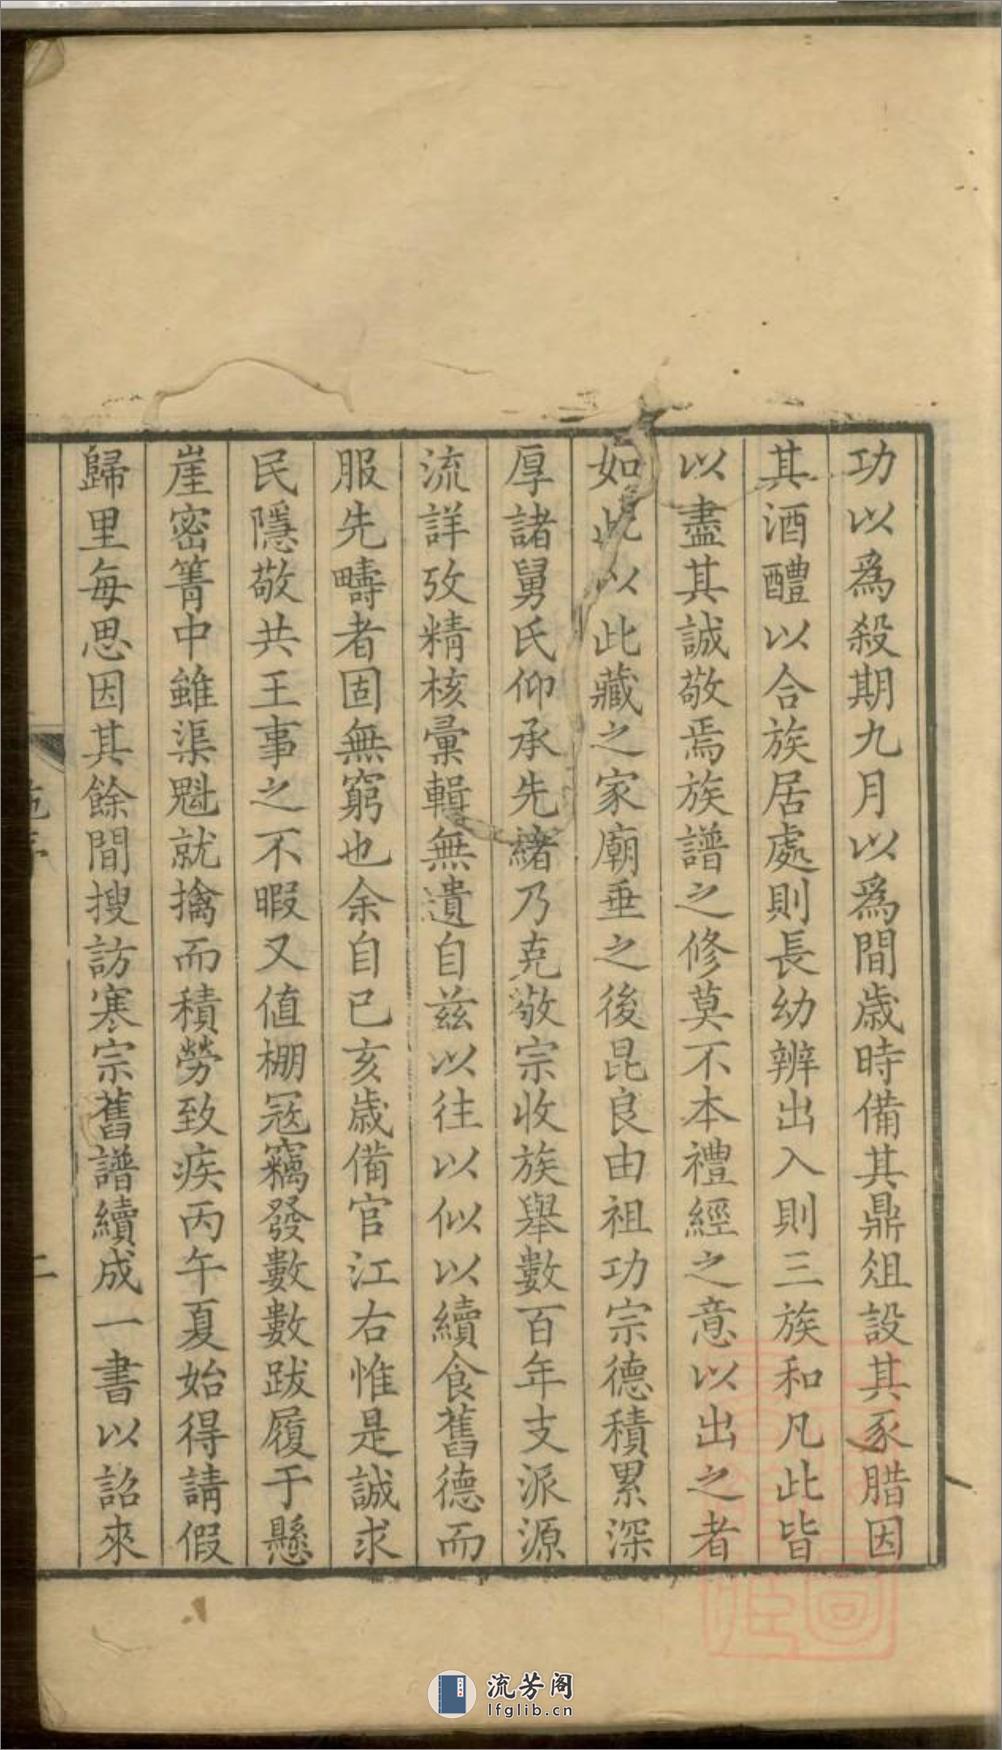 功以爲殺期九月以爲間歲時備其鼎俎設其豕腊因
其酒醴以合族居處則長幼辨出入則三族和凡此皆
以盡其誠敬焉族譜之修莫不本禮經之意以出之者
如此以此藏之家廟垂之後昆良由祖功宗德積累深
厚諸舅氏仰承先緒乃克敬宗收族舉數百年支派源
流詳攷精核彙輯無遺自兹以往以似以續食舊德而
服先疇者固無窮也余自已亥歲備官江右惟是誠求
民隱敬共王事之不暇又值棚寇竊發數數跋履于懸
崖密箐中雖渠魁就擒而積勞致疾丙午夏始得請假
歸里每思因其餘間搜訪寒宗舊譜續成一書以詔來
二
流芳阁
lfglib.cn